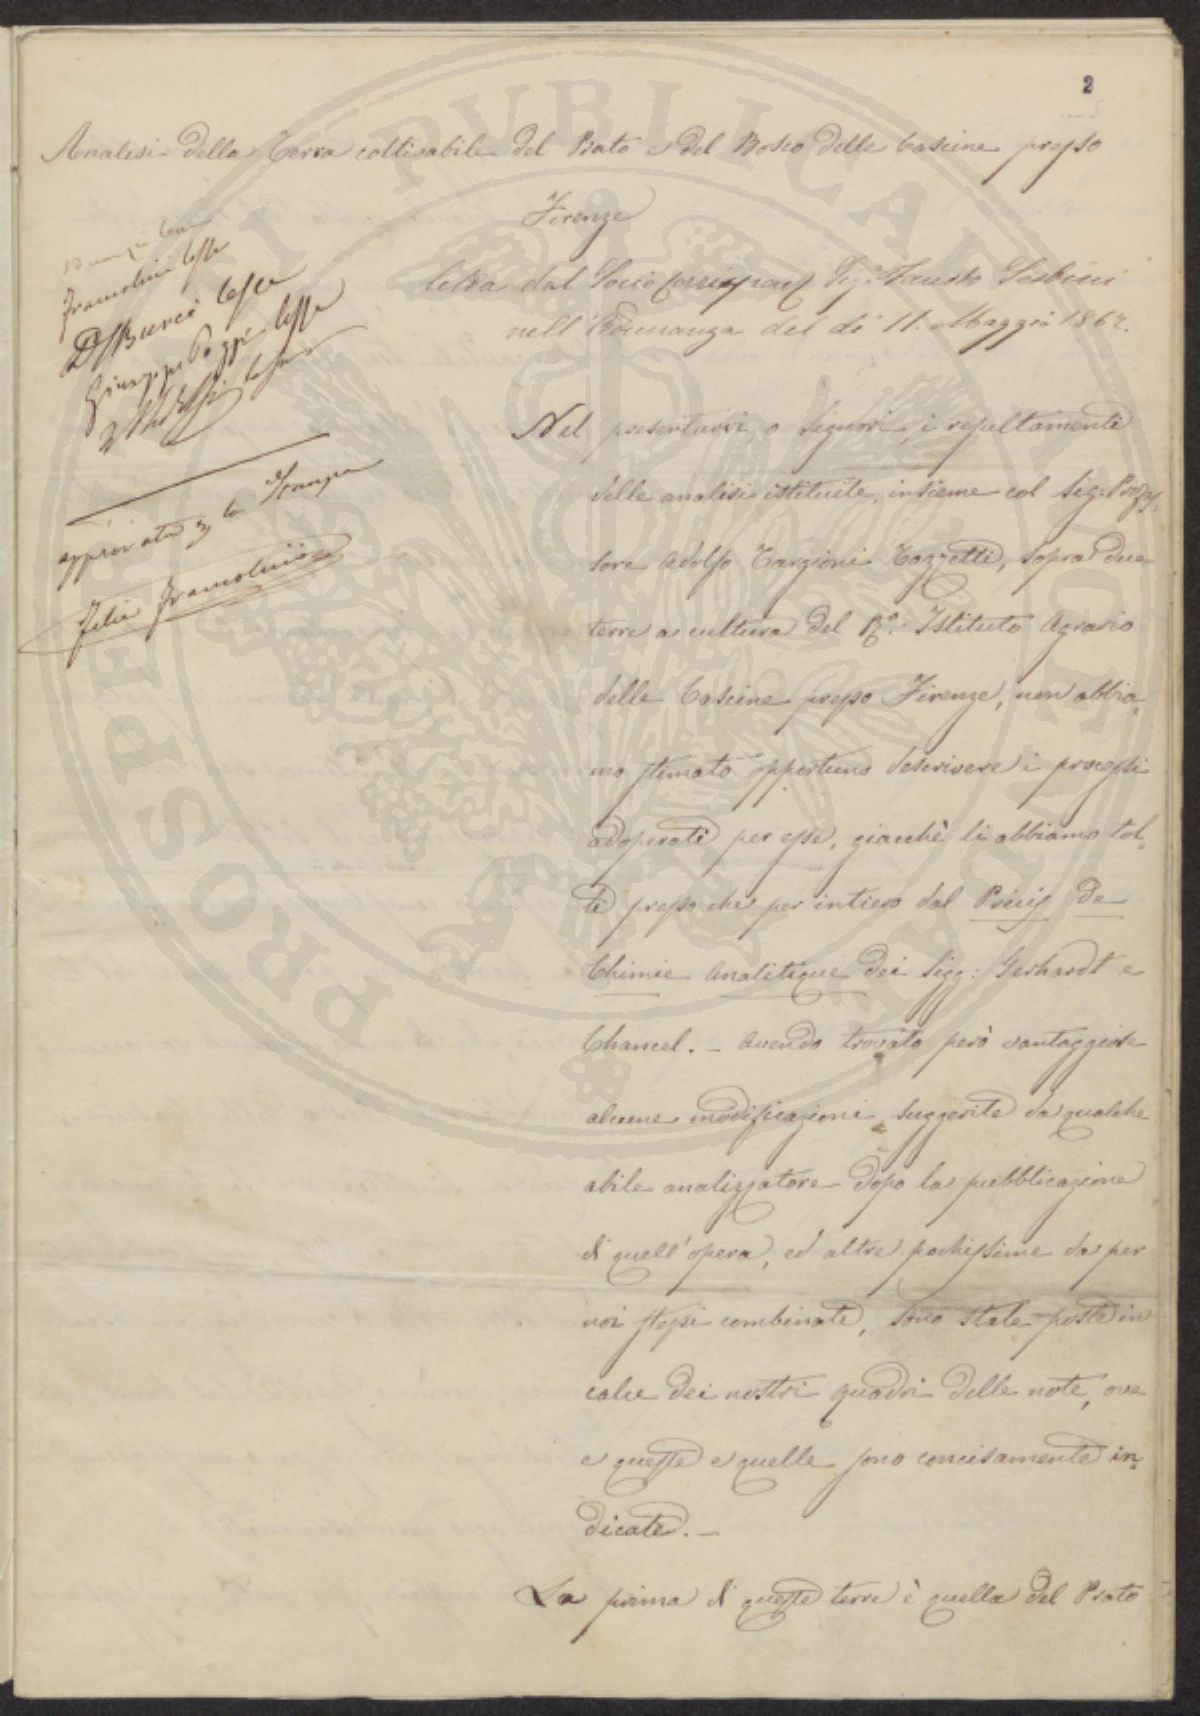 2
Analisi della Terra coltivabile del Prato e del Bosco delle Cascine presso
Firenze
letta dal Socio Corrispond Sig: Fausto Sestini
nell'Adunanza del dì 11. Maggio 1862.
Franceschini lesse
D Burci lesse
Giuseppe Poggi lesse
approvata per la Stampa
Nel presentarvi, o Signori, i resultamenti
delle analisi istituite, insieme col Sig: Profes-
sore Adolfo Targioni Tozzetti, sopra due
terre a cultura del R.º Istituto Agrario
delle Cascine presso Firenze, non abbia-
mo stimato opportuno descrivere i processi
adoperati per esse, giacchè li abbiamo tol-
ti presso che per intiero dal Précis De
Chimie Analitique dei Sigg: Gerhardt e
Chancel. – Avendo trovato però vantaggiose
alcune modificazioni suggerite da qualche
abile analizzatore dopo la pubblicazione
di quell'opera, ed altre pochissime da per
noi stessi combinate, sono state poste in
calce dei nostri quadri delle note, ove
e queste e quelle sono concisamente in-
dicate. –
La prima di queste terre è quella del Prato
PROSPERITATI PUBLICAE AUGENDAE